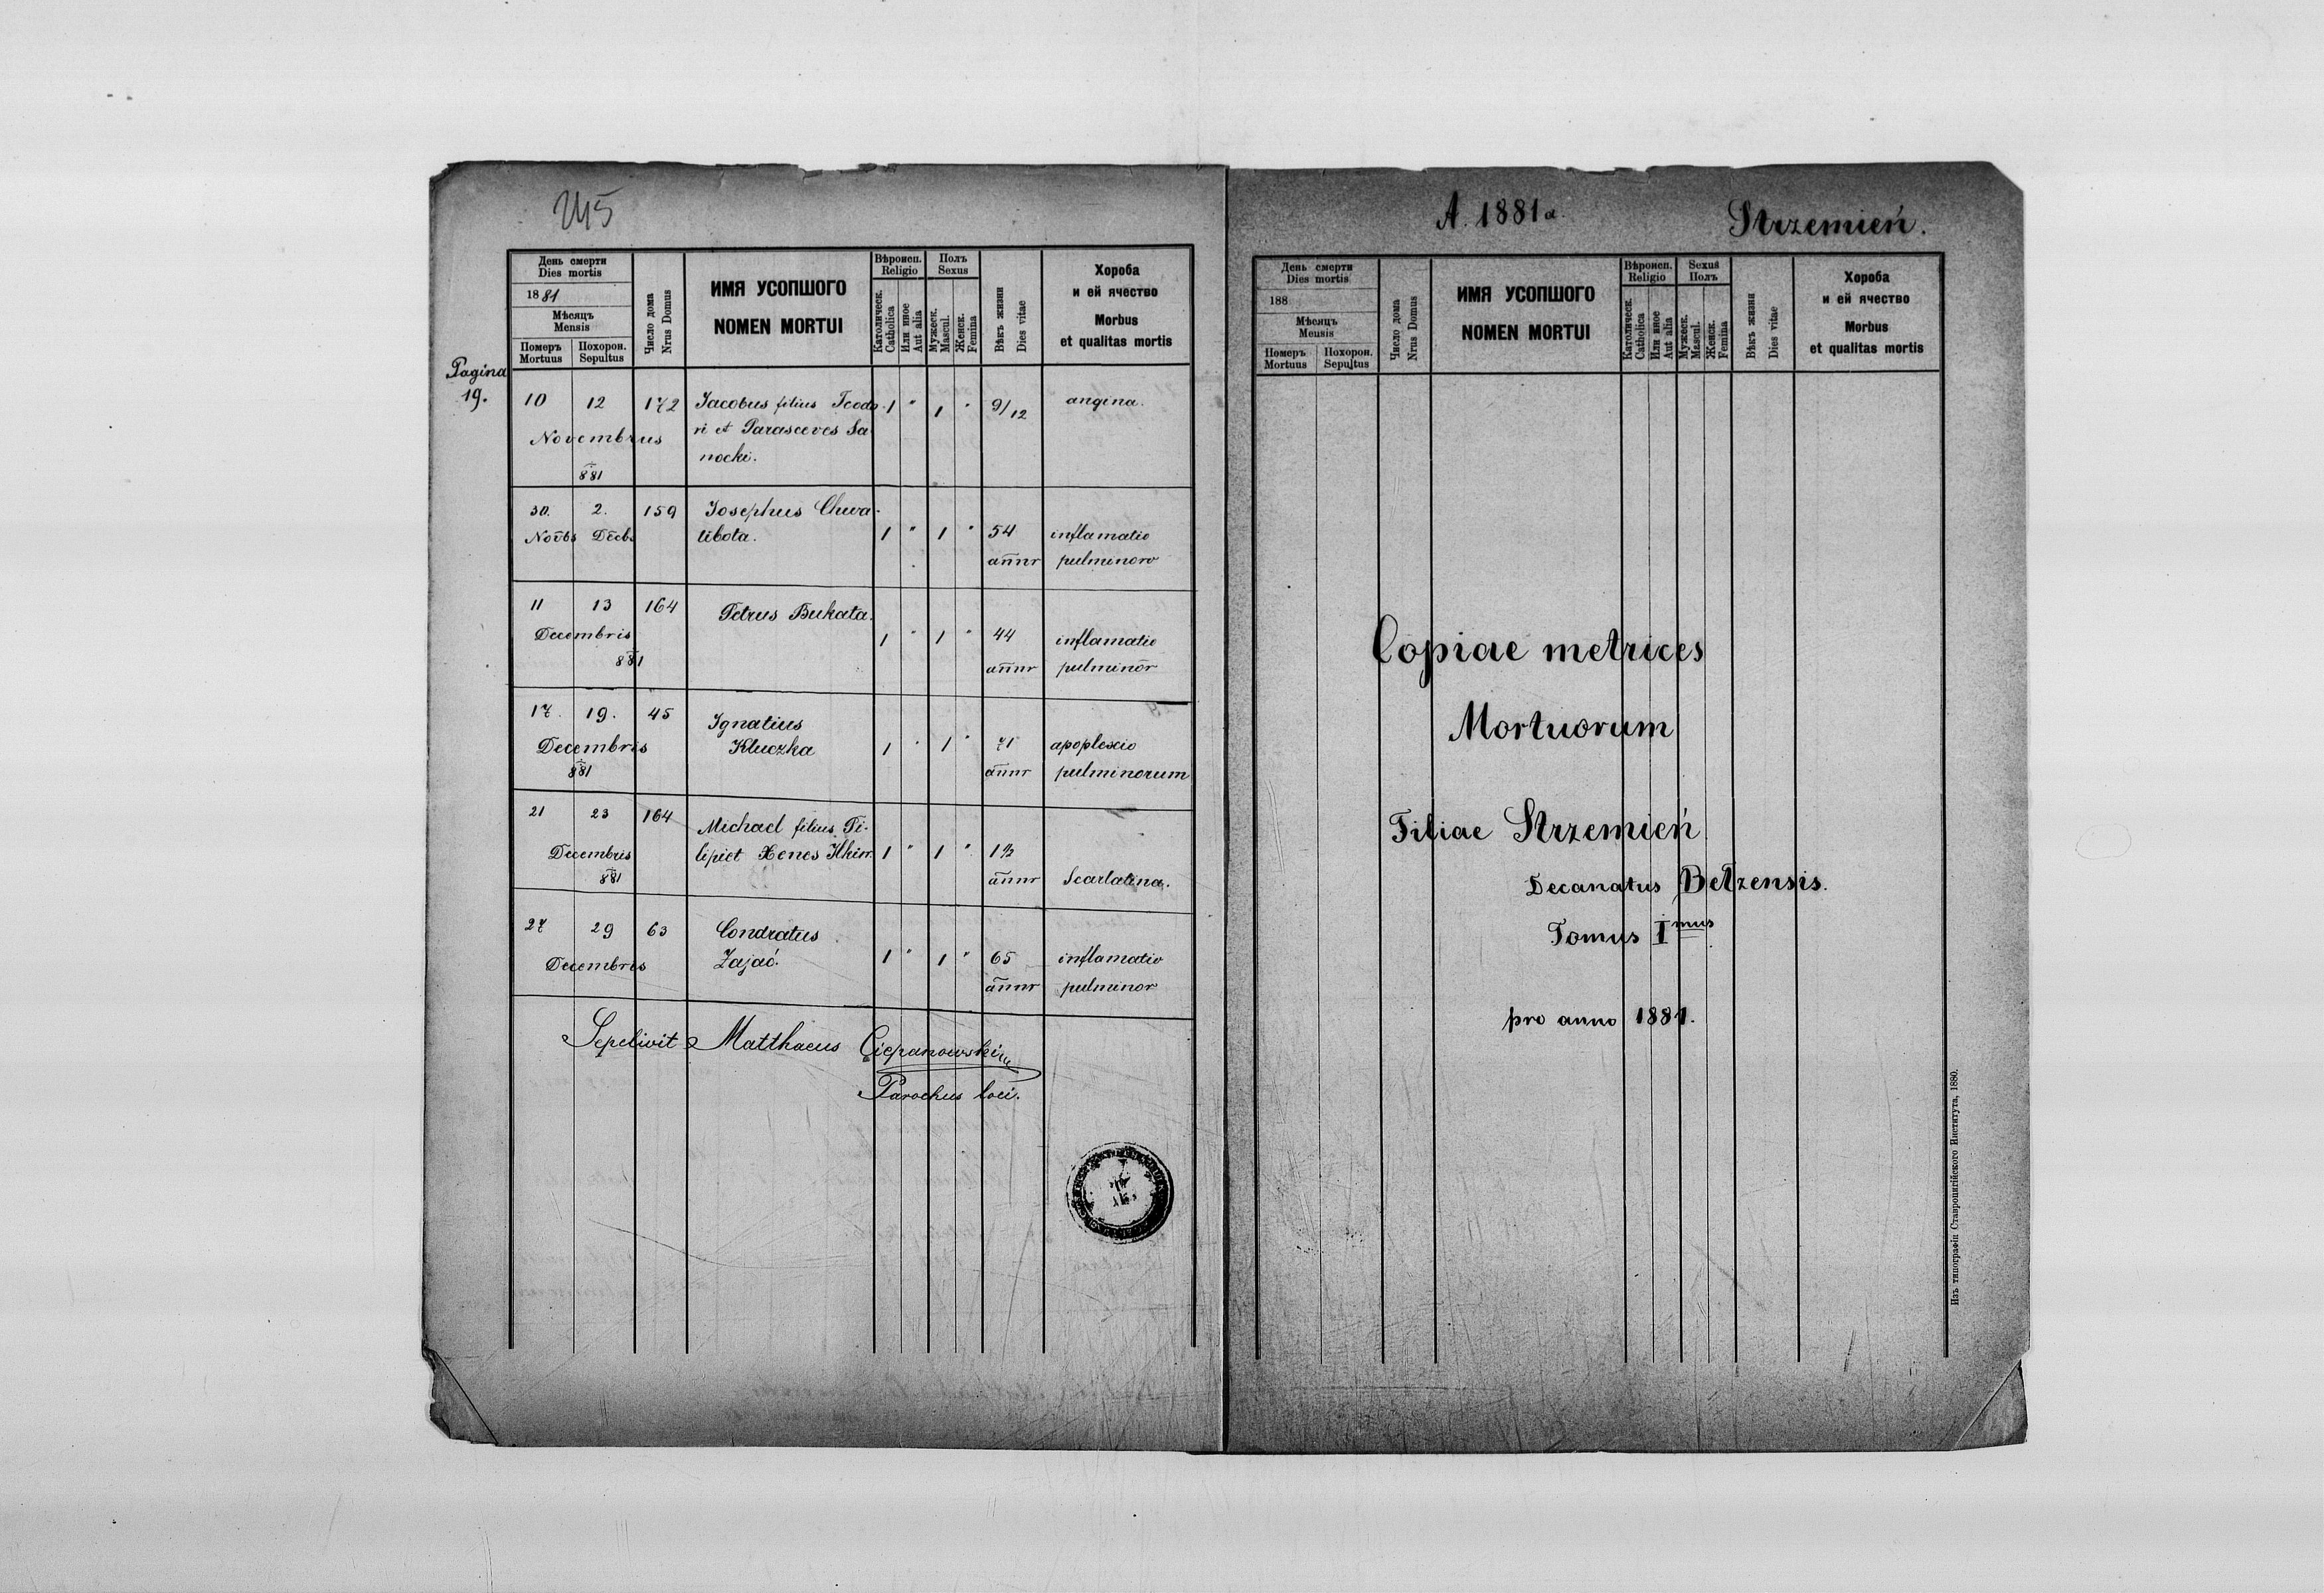 245
День смерти
Dies mortis
1881
Мѣсяцъ
Mensis
Померъ
Mortuus
Похорон.
Sepultus
Число дома
Nrus Domus
ИМЯ УСОПШОГО
NOMEN MORTUI
Вѣроисп.
Religio
Католическ.
Catholica
Или иное
Aut alia
Полъ
Sexus
Мужеск.
Mascul.
Женск.
Femina
Вѣкъ жизни
Dies vitae
Хороба
и ей ячество
Morbus
et qualitas mortis
Pagina
19.
10 12 172 Jacobus filius Teodo- 1 " 1 " 9/12 angina.
Novembrus ri et Parasceves Sa
nocki.
881
30. 2. 159 Josephus Chwa-
Novbs Decbs libota. 1 " 1 " 54 inflamatio
annr pulminoro
11 13 164 Petrus Bukata.
Decembris 1 " 1 " 44 inflamatio
881 annr pulminor
17. 19. 45 Ignatius
Decembris Kluczka 1 " 1 " 71 apoplexio
881 annr pulminorum
21 23 164 Michael filius Fi-
Decembris lipiet Xenes 1 " 1 " 1½
881 annr Scarlatina.
27 29 63 Condratus
Decembris Zajać. 1 " 1 " 65 inflamatio
annr pulminor
Sepelivit Matthaeus Ciepanowski
Parochus loci.
A. 1881 Strzemień.
День смерти
Dies mortis
188
Мѣсяцъ
Mensis
Померъ
Mortuus
Похорон.
Sepultus
Число дома
Nrus Domus
ИМЯ УСОПШОГО
NOMEN MORTUI
Вѣроисп.
Religio
Католическ.
Catholica
Или иное
Aut alia
Sexus
Полъ
Мужеск.
Mascul.
Женск.
Femina
Вѣкъ жизни
Dies vitae
Хороба
и ей ячество
Morbus
et qualitas mortis
Copiae metrices
Mortuorum
Filiae Strzemień
Decanatus Belzensis.
Tomus Imus
pro anno 1881.
Изъ типографіи Ставропигійского Института, 1880.